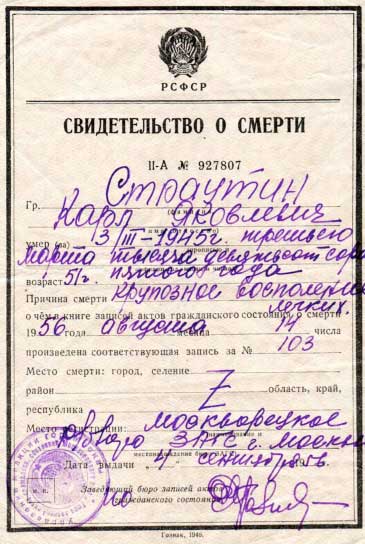 РСФСР
СВИДЕТЕЛЬСТВО О СМЕРТИ
II-А № 927807
Гр. Страутин
Карл Яковлевич
умер (ла) 3/III-1945г. третьего
марта тысяча девятьсот сорок
пятого года
возраст 51г.
Причина смерти крупозное воспаление
легких
о чём в книге записей актов гражданского состояния о смерти
1956 года августа месяца 14 числа
произведена соответствующая запись за № 103
Место смерти: город, селение
район Z область, край,
республика
Место регистрации: Москворецкое
бюро ЗАГС г. Москвы
Дата выдачи 4 сентября 1956г.
Заведующий бюро записей актов
гражданского состояния
М. П.
Гознак, 1946.